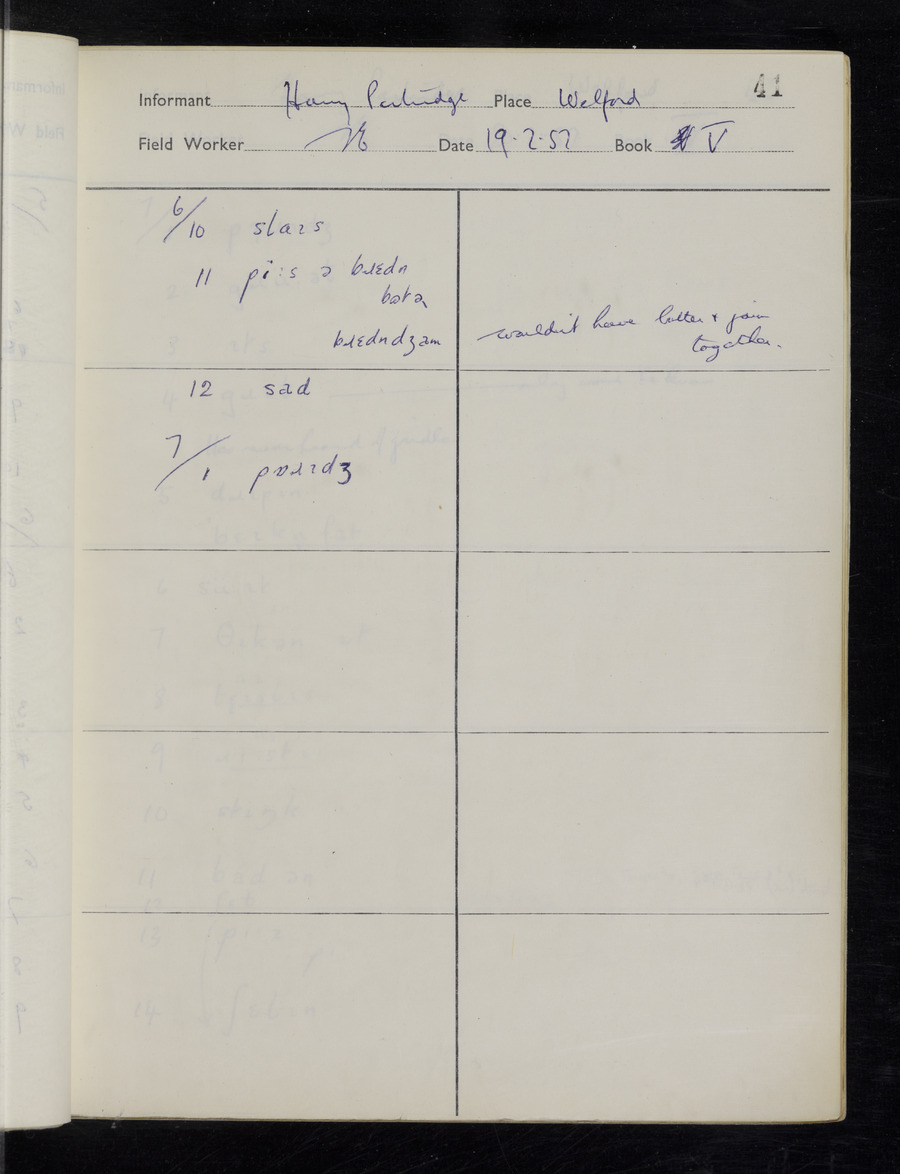 41
Informant Harry Partridge Place Welford
Field Worker Date 19.2.57 Book V
6/10 slaɪs
11 pi:s ə bɹɛdn
bʊtə
bɹɛdndʒam wouldn't have butter & jam
together.
12 sad
7/1 pɒɹɪdʒ